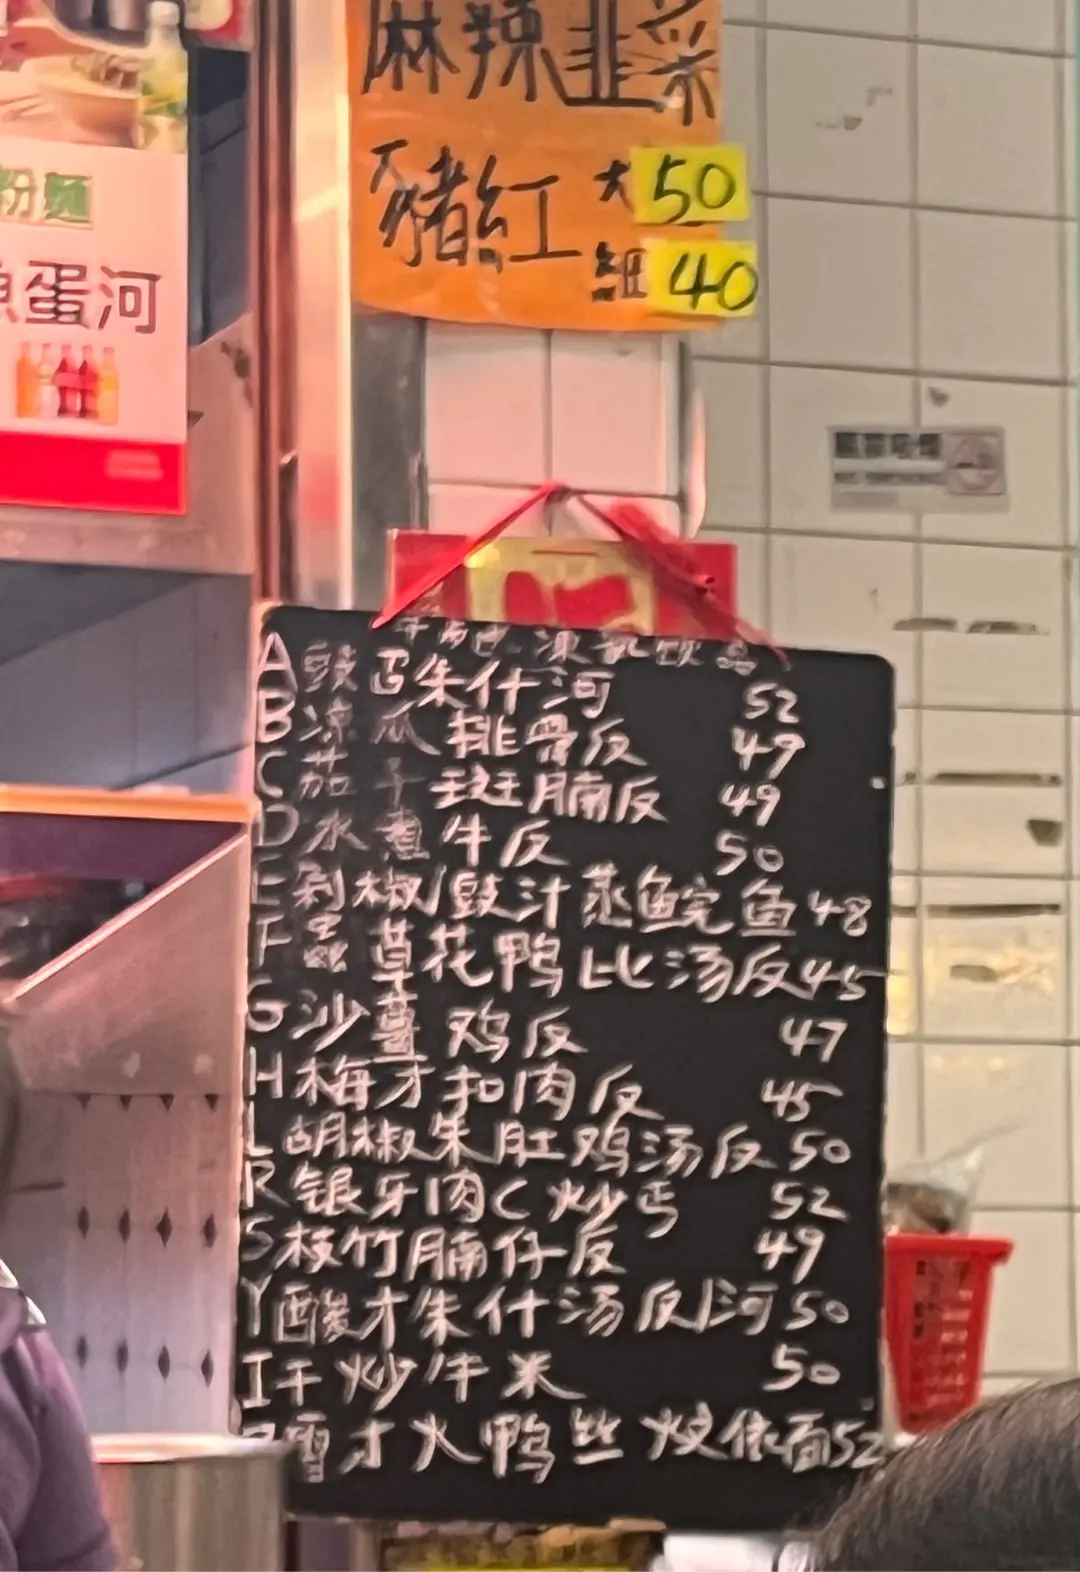 麻辣韭菜
豬紅 大 50
細 40
粉麵
魚蛋河
A 豉 朱什河 52
B 凉瓜 排骨反 49
C 茄子 斑腩反 49
D 水煮 牛反 50
E 剁椒/豉汁 蒸鲩鱼 48
F 虫草花鸭比汤反 45
G 沙姜 鸡反 47
H 梅才扣肉反 45
L 胡椒朱肚鸡汤反 50
R 银牙肉C炒丐 52
S 枝竹腩仔反 49
Y 酸才朱什汤反/河 50
I 干炒牛米 50
雪才火鸭丝炆依面 52